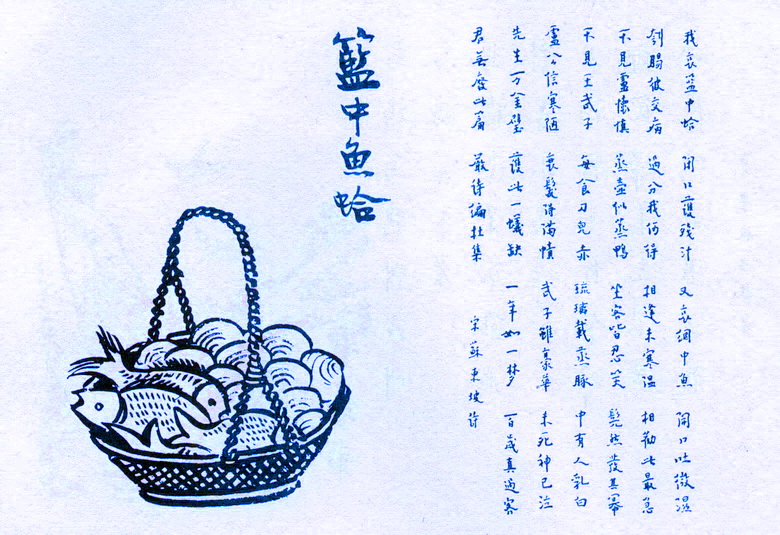 籃中魚蛤
我哀籃中蛤 閉口護殘汁 又哀網中魚 開口吐微濕
刳腸彼交病 過分我何得 相逢未寒温 相勸此最急
不見盧懷慎 蒸壺似蒸鴨 坐客皆忍笑 髡然發其冪
不見王武子 每食刀兒赤 琉璃載蒸豚 中有人乳白
盧公信寒陋 衰鬢得滿幘 武子雖豪華 未死神已泣
先生万金璧 護此一蟻缺 一年如一梦 百歲真過客
君無廢此篇 嚴詩編杜集
宋蘇東坡詩